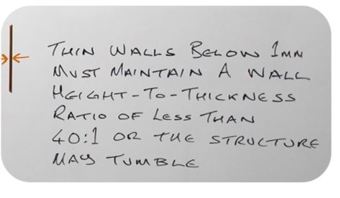 THIN WALLS BELOW 1MM
MUST MAINTAIN A WALL
HEIGHT-TO-THICKNESS
RATIO OF LESS THAN
40:1 OR THE STRUCTURE
MAY TUMBLE